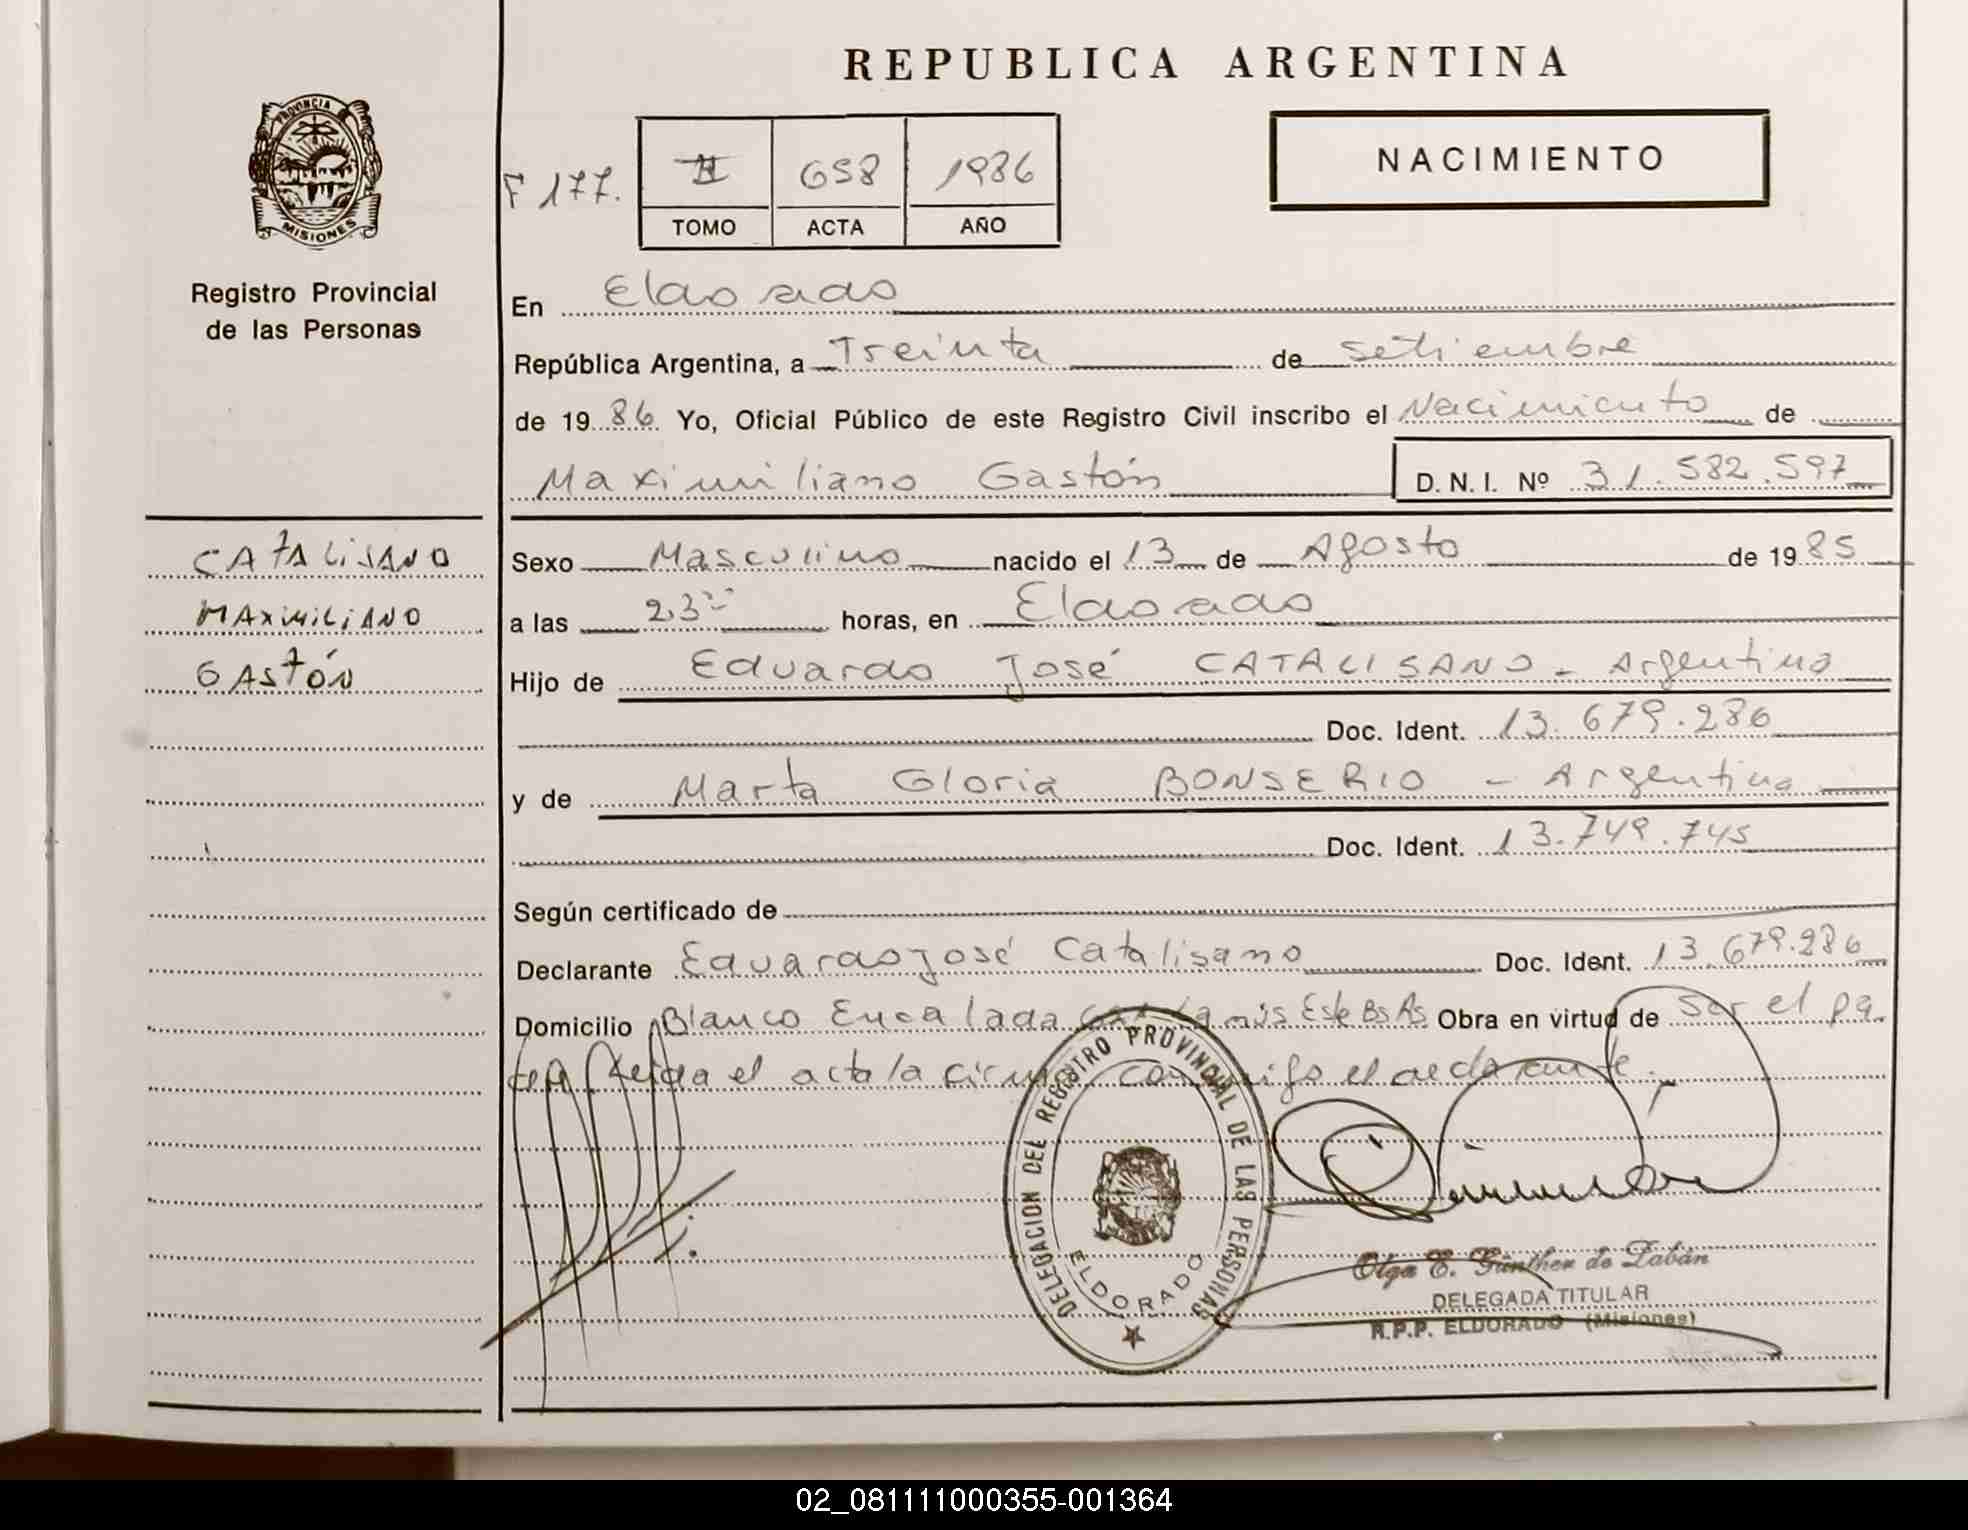 REPUBLICA ARGENTINA
NACIMIENTO
PROVINCIA
MISIONES
Registro Provincial
de las Personas
F 177.
II 658 1986
TOMO ACTA AÑO
En Eldorado
República Argentina, a Treinta de setiembre
de 1986 Yo, Oficial Público de este Registro Civil inscribo el Nacimiento de
Maximiliano Gastón D.N.I. Nº 31.582.597
CATALISANO
MAXIMILIANO
GASTÓN
Sexo Masculino nacido el 13 de Agosto de 1985
a las 23 horas, en Eldorado
Hijo de Eduardo José CATALISANO - Argentina
Doc. Ident. 13.679.286
y de Marta Gloria BONSERIO - Argentina
Doc. Ident. 13.749.745
Según certificado de
Declarante Eduardo José Catalisano Doc. Ident. 13.679.286
Domicilio Blanco Encalada Este Bs As Obra en virtud de ser el pa
Leida el acta la conmigo el declarante.
DELEGACION DEL REGISTRO PROVINCIAL DE LAS PERSONAS
ELDORADO
Olga E. Günther de Zabán
DELEGADA TITULAR
R.P.P. ELDORADO (Misiones)
02_081111000355-001364